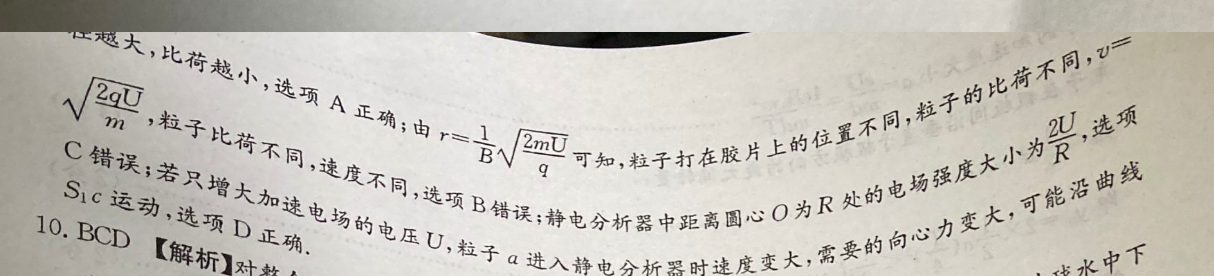 越大,比荷越小,选项 A 正确;由 r=\frac{1}{B}\sqrt{\frac{2mU}{q}} 可知,粒子打在胶片上的位置不同,粒子的比荷不同,v=
\sqrt{\frac{2qU}{m}},粒子比荷不同,速度不同,选项 B 错误;静电分析器中距离圆心 O 为 R 处的电场强度大小为\frac{2U}{R},选项
C 错误;若只增大加速电场的电压 U,粒子 a 进入静电分析器时速度变大,需要的向心力变大,可能沿曲线
S₁c 运动,选项 D 正确.
10. BCD 【解析】对整 水中下